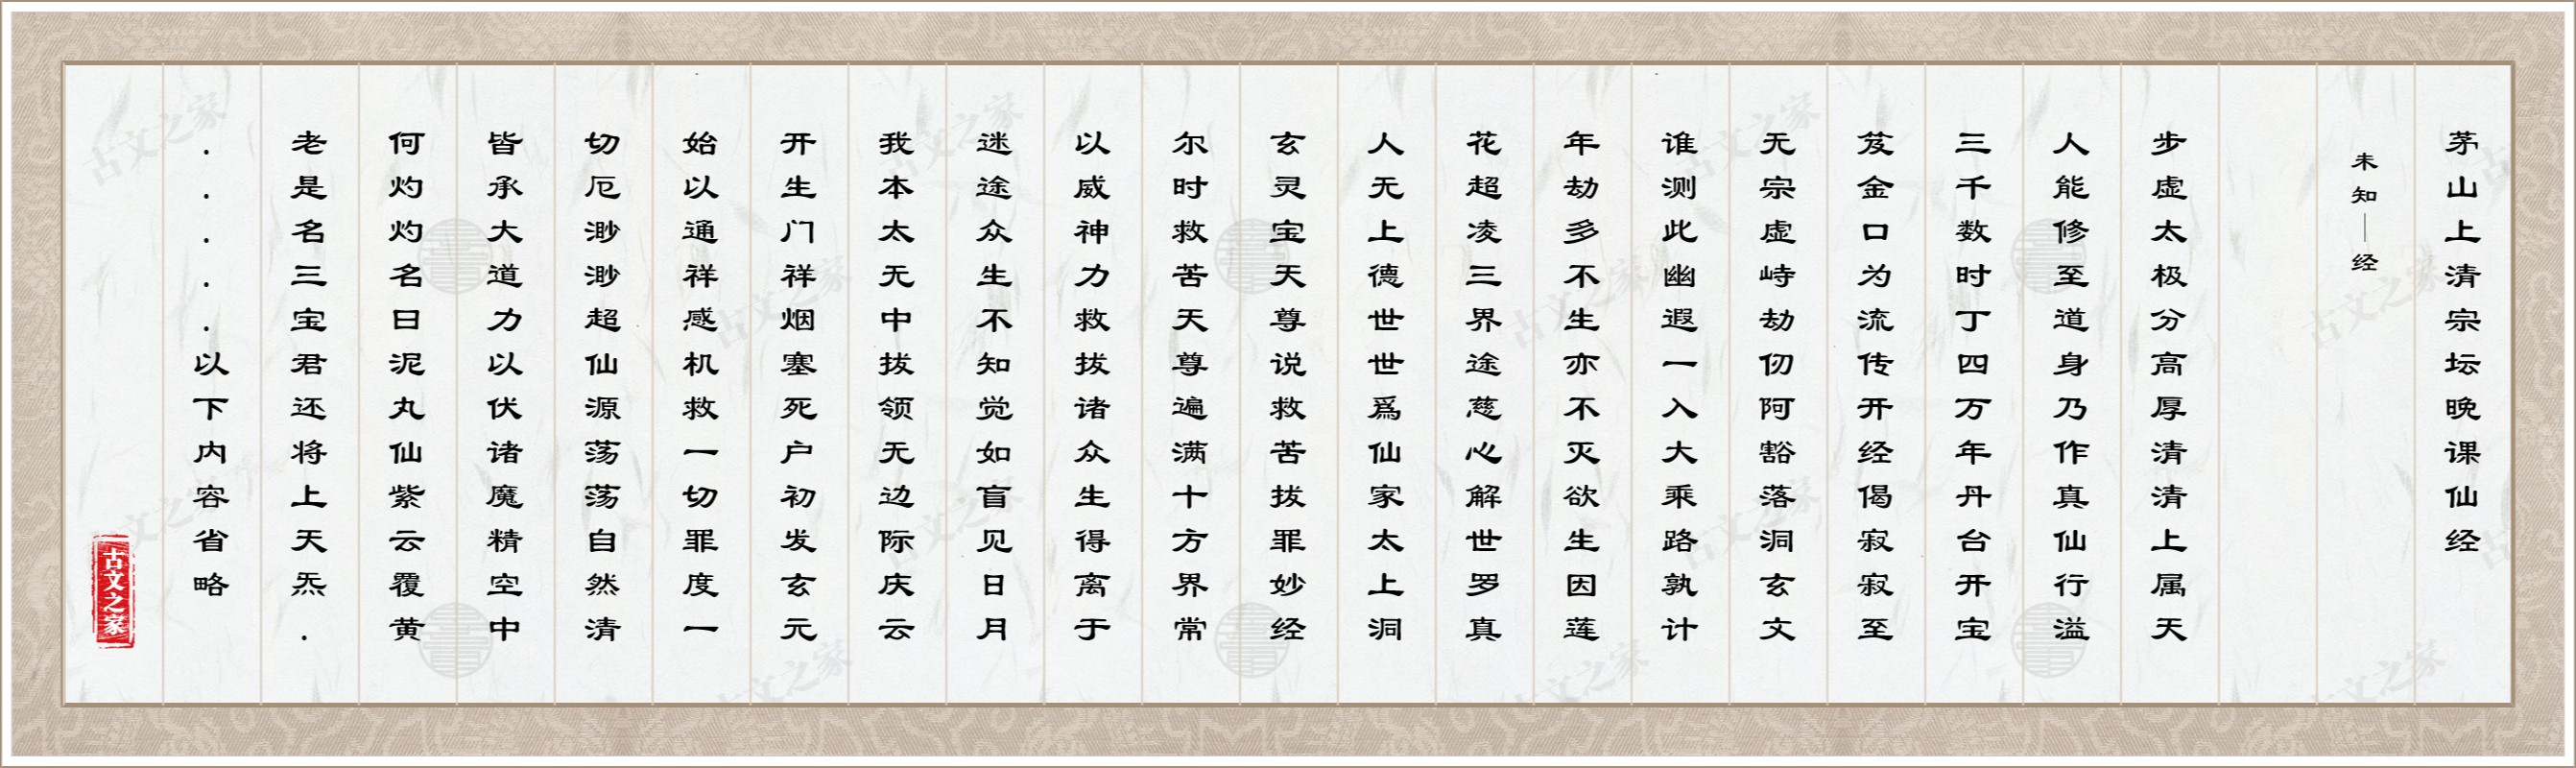 茅山上清宗坛晚课仙经
未知｜经
步虚太极分高厚清清上属天
人能修至道身乃作真仙行溢
三千数时丁四万年丹台开宝
笈金口为流传开经偈寂寂至
无宗虚峙劫仞阿豁落洞玄文
谁测此幽遐一入大乘路孰计
年劫多不生亦不灭欲生因莲
花超凌三界途慈心解世罗真
人无上德世世爲仙家太上洞
玄灵宝天尊说救苦拔罪妙经
尔时救苦天尊遍满十方界常
以威神力救拔诸众生得离于
迷途众生不知觉如盲见日月
我本太无中拔领无边际庆云
开生门祥烟塞死户初发玄元
始以通祥感机救一切罪度一
切厄渺渺超仙源荡荡自然清
皆承大道力以伏诸魔精空中
何灼灼名日泥丸仙紫云覆黄
老是名三宝君还将上天炁.
.....以下内容省略
古文之家